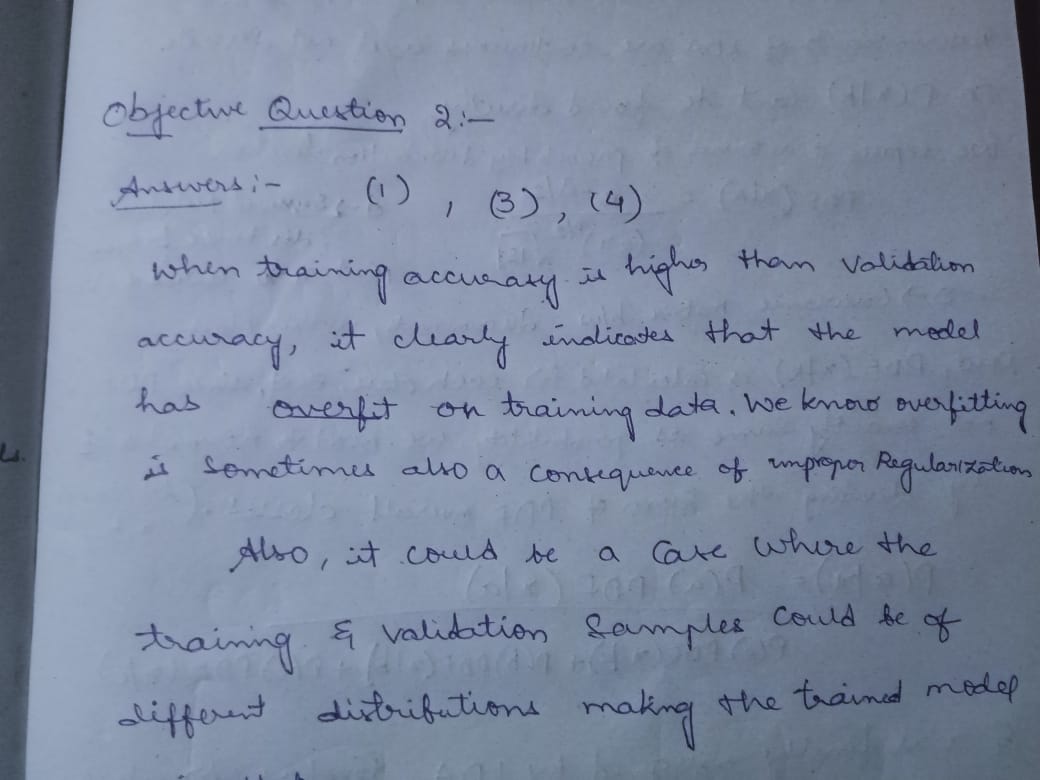 Objective Question 2:-
Answers:- (1), (3), (4)
When training accuracy is higher than validation
accuracy, it clearly indicates that the model
has overfit on training data. We know overfitting
is sometimes also a consequence of improper Regularization
Also, it could be a case where the
training & validation samples could be of
different distributions making the trained model